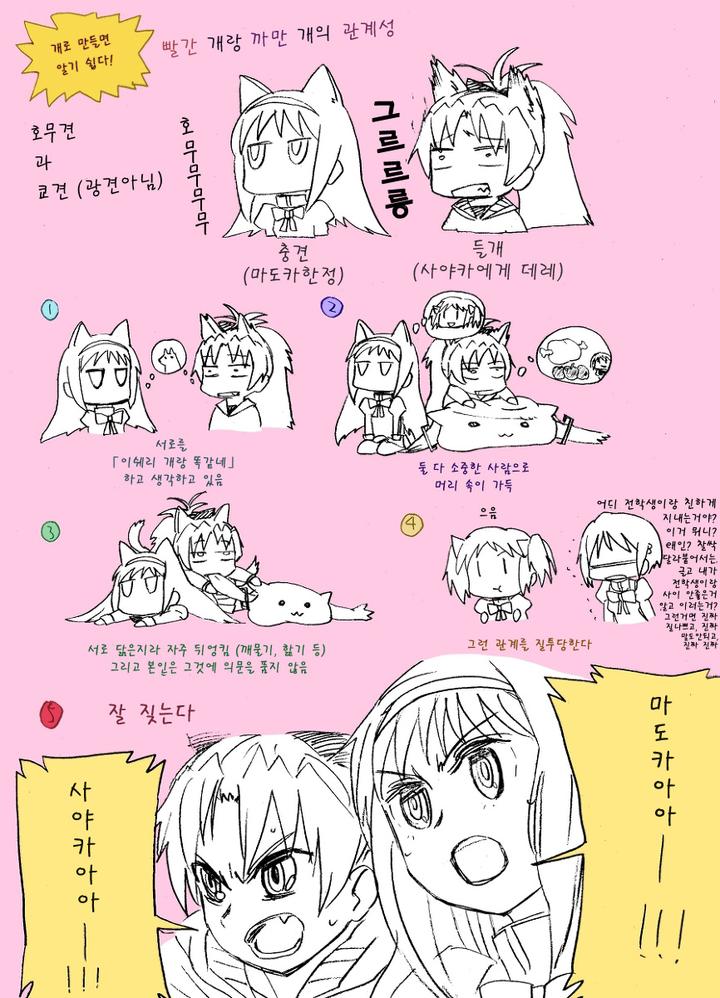 개로 만들면
알기 쉽다!
빨간 개랑 까만 개의 관계성
호무견
과
쿄견 (광견아님)
호무무무무무
그르르릉
충견
(마도카한정)
들개
(사야카에게 데레)
1
서로를
「이쉐리 개랑 똑같네」
하고 생각하고 있음
2
둘 다 소중한 사람으로
머리 속이 가득
3
서로 닮은지라 자주 뒤엉킴 (깨물기, 핥기 등)
그리고 본인은 그것에 의문을 품지 않음
4
으음
어디 전학생이랑 친하게
지내는거야?
이거 뭐니?
애인? 찰싹
달라붙어서는,
글고 내가
전학생이랑
사이 안좋은거
알고 이러는거?
그런거면 진짜
질나쁘고, 진짜
말도안되고,
진짜 진짜
그런 관계를 질투당한다
5
잘 짖는다
사야카아아ー!!!
마도카아아ー!!!